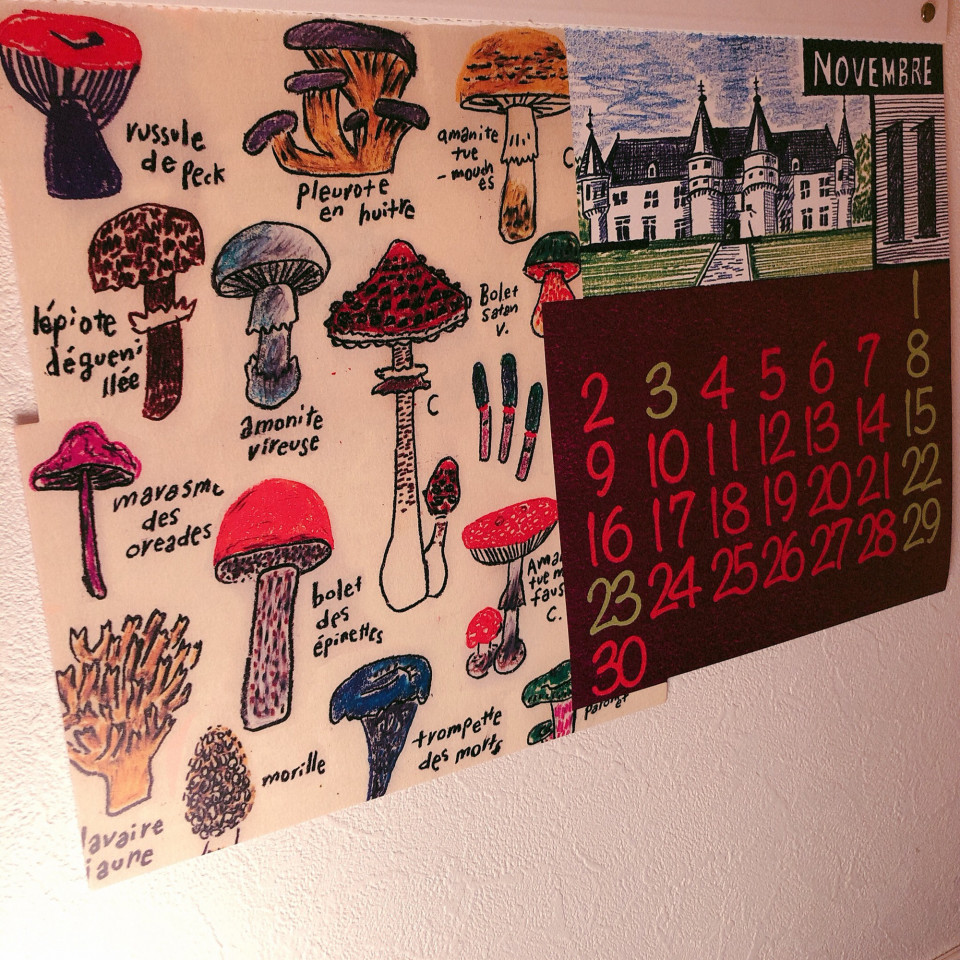 russule
de Peck
pleurote
en huitre
amanite
tue
-mouch
es
lépiote
dégueni
llée
amonite
vireuse
C
Bolet
Satan
V.
marasme
des
oreades
bolet
des
épinettes
Ama
tue m
faus
C.
lavaire
jaune
morille
trompette
des morts
NOVEMBRE
11
1
2 3 4 5 6 7 8
9 10 11 12 13 14 15
16 17 18 19 20 21 22
23 24 25 26 27 28 29
30